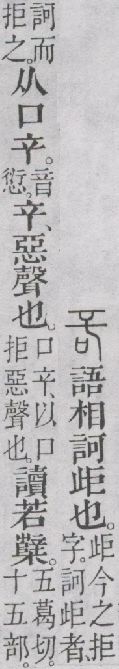 語相訶歫也。歫今之拒字。訶歫者、
訶而拒之。从口䇂。音愆。䇂、惡聲也。口䇂、以口拒惡聲也。讀若櫱。五葛切。十五部。